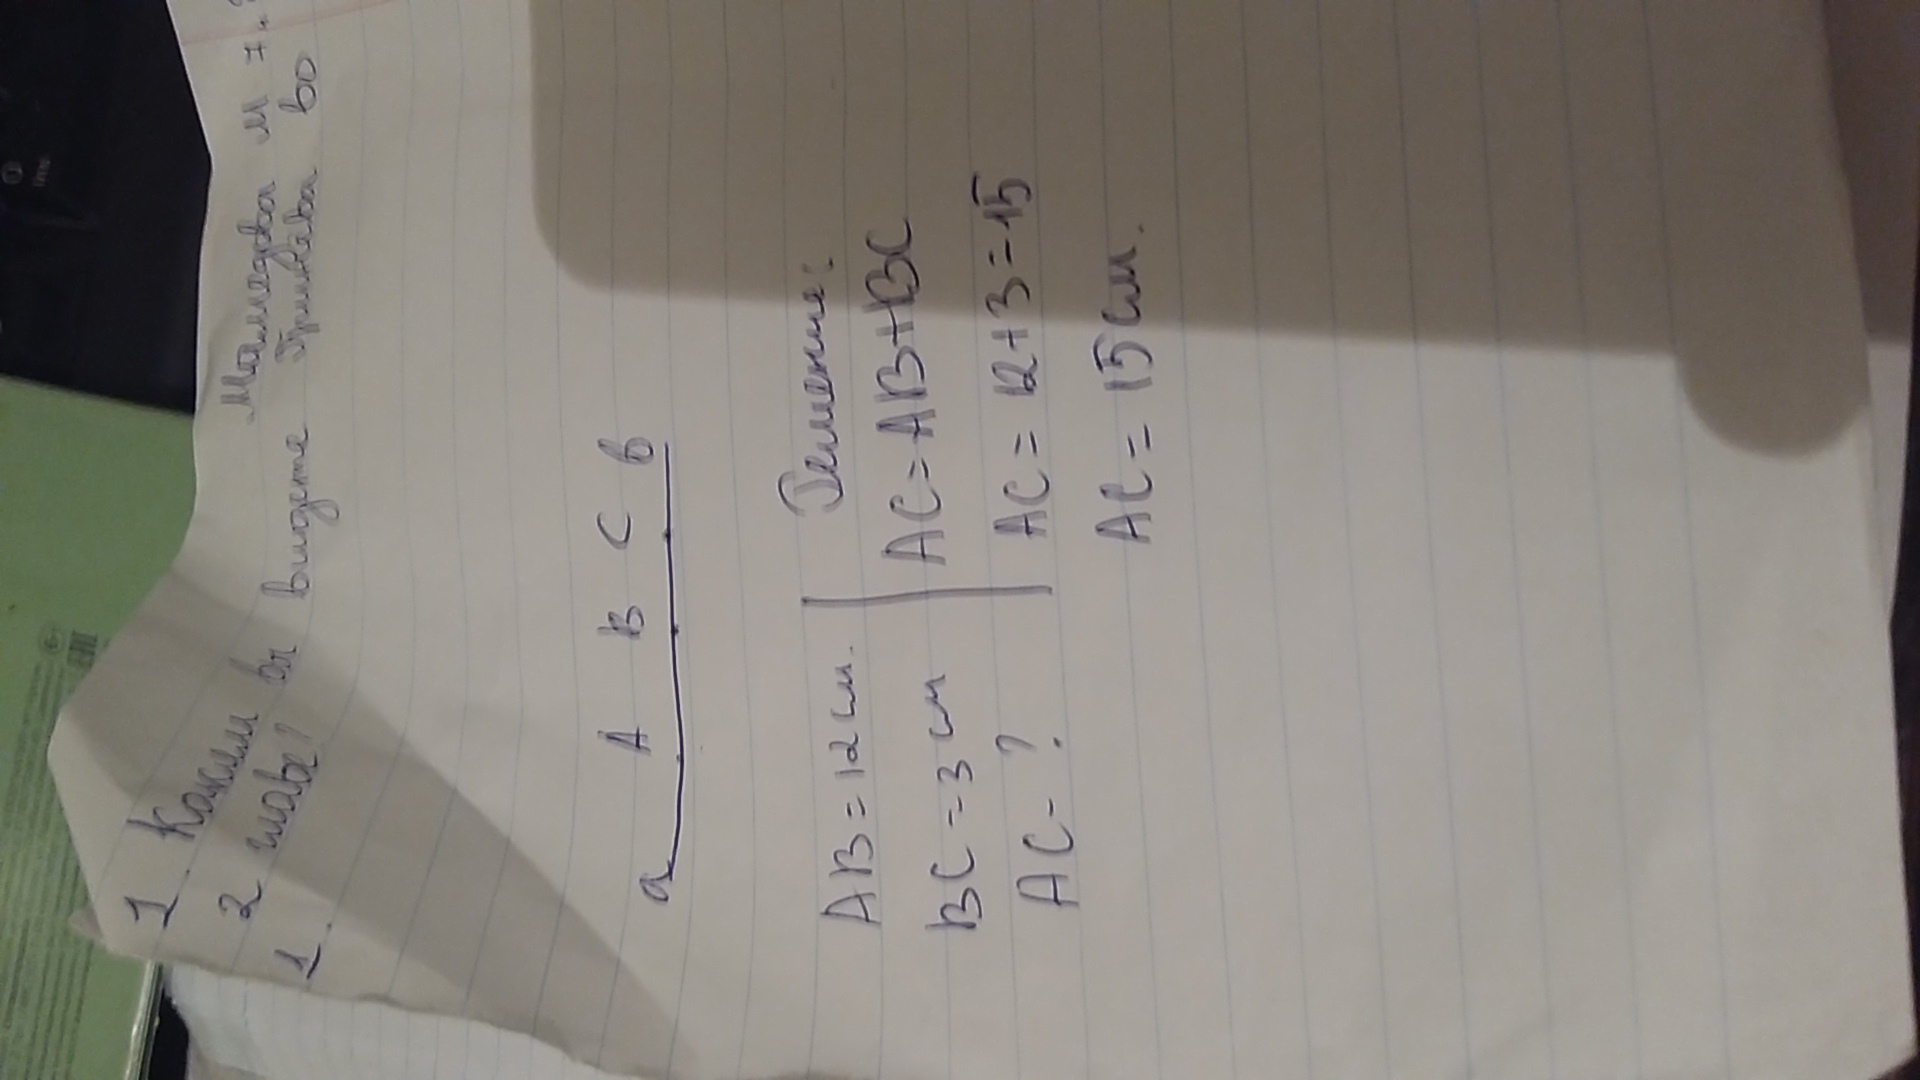 Мамедова М 7.
1. Какими вы видете Гринёва во
2 главе?
1.
A B C
a b
AB = 12 см.
BC = 3 см
AC - ?
Решение:
AC = AB + BC
AC = 12 + 3 = 15
AC = 15 см.